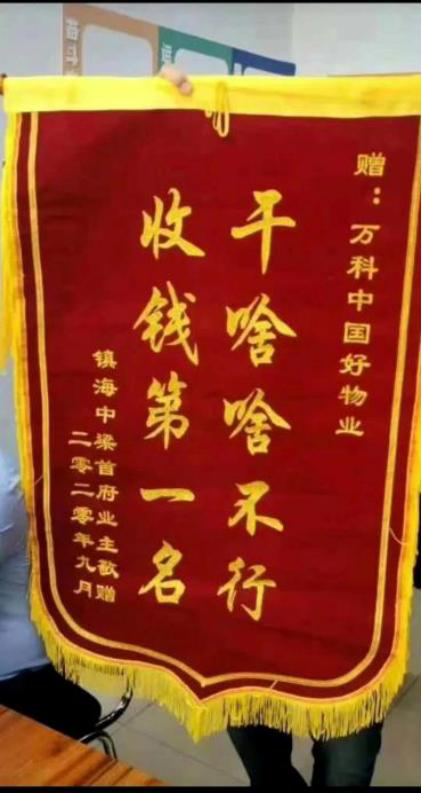 奋斗
赠：万科中国好物业
干啥啥不行
收钱第一名
镇海中梁首府业主敬赠
二零二零年九月